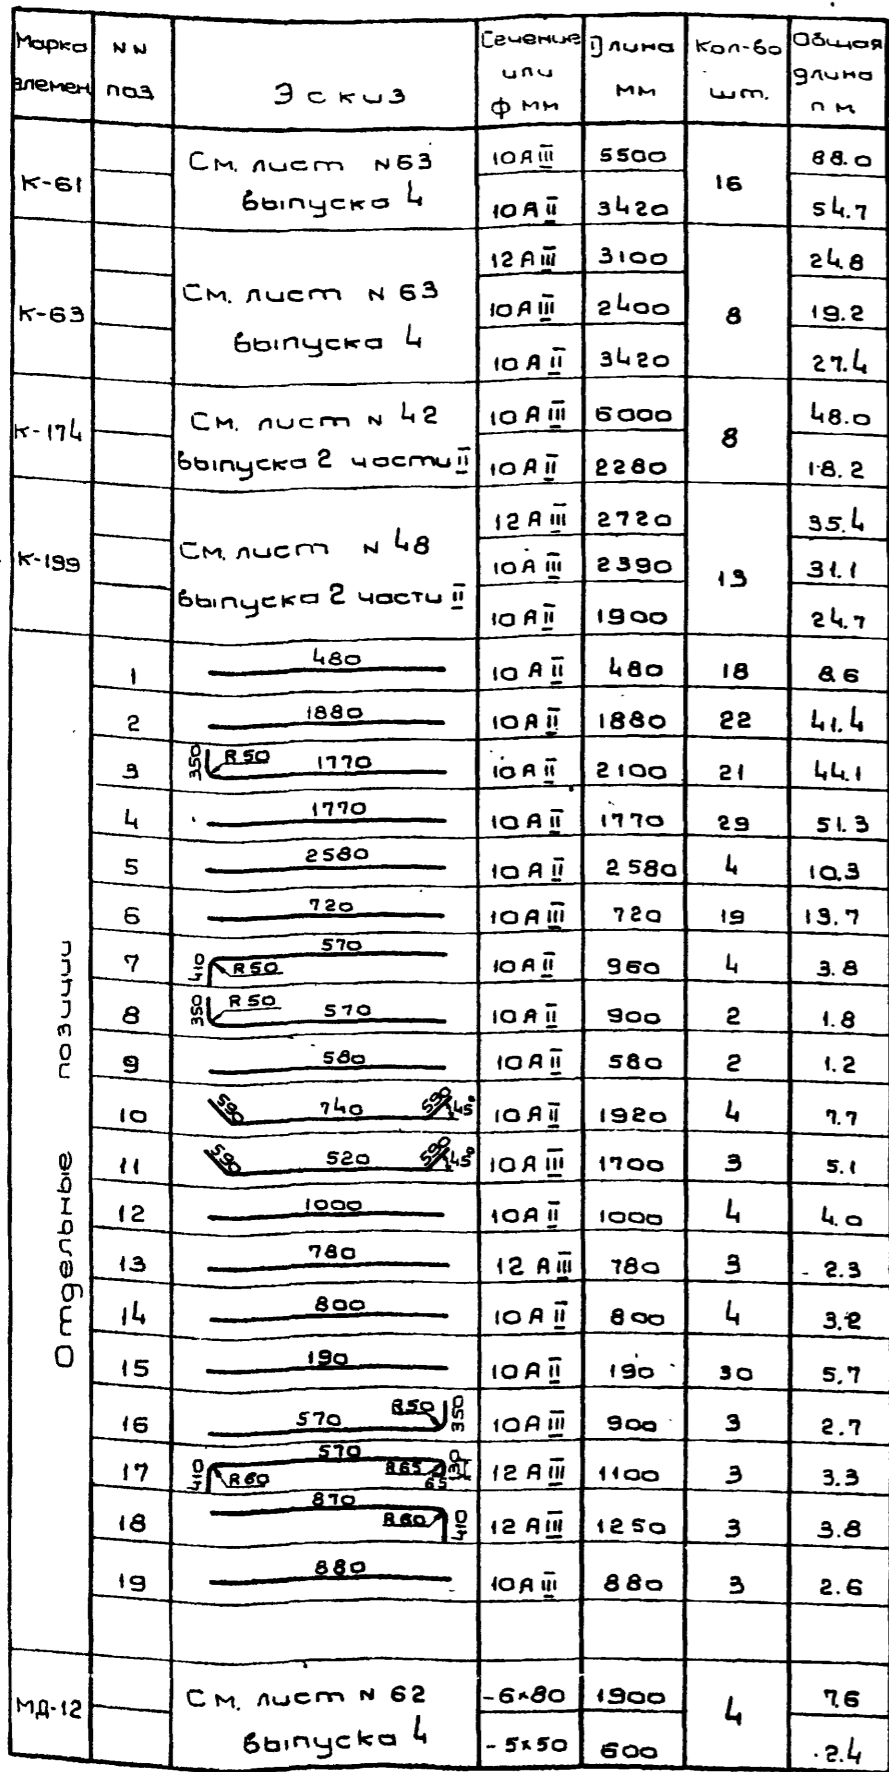 Марка элемен | NN поз | Эскиз | Сечение или ф мм | Длина мм | Кол-во шт. | Общая длина п м
К-61 | См. лист N63 выпуска 4 | 10 A III | 5500 | 16 | 88.0
10 A II | 3420 | 54.7
К-63 | См. лист N 63 выпуска 4 | 12 A III | 3100 | 8 | 24.8
10 A III | 2400 | 19.2
10 A II | 3420 | 27.4
К-174 | См. лист N 42 выпуска 2 части II | 10 A III | 6000 | 8 | 48.0
10 A II | 2280 | 18.2
К-199 | См. лист N 48 выпуска 2 части II | 12 A III | 2720 | 13 | 35.4
10 A III | 2390 | 31.1
10 A II | 1900 | 24.7
Отдельные позиции
1 | 480 | 10 A II | 480 | 18 | 8.6
2 | 1880 | 10 A II | 1880 | 22 | 41.4
3 | 350 R50 1770 | 10 A II | 2100 | 21 | 44.1
4 | 1770 | 10 A II | 1770 | 29 | 51.3
5 | 2580 | 10 A II | 2580 | 4 | 10.3
6 | 720 | 10 A III | 720 | 19 | 13.7
7 | 410 R50 570 | 10 A II | 960 | 4 | 3.8
8 | 350 R50 570 | 10 A II | 900 | 2 | 1.8
9 | 580 | 10 A II | 580 | 2 | 1.2
10 | 590 740 590 45° | 10 A II | 1920 | 4 | 7.7
11 | 590 520 590 45° | 10 A III | 1700 | 3 | 5.1
12 | 1000 | 10 A II | 1000 | 4 | 4.0
13 | 780 | 12 A III | 780 | 3 | 2.3
14 | 800 | 10 A II | 800 | 4 | 3.2
15 | 190 | 10 A II | 190 | 30 | 5.7
16 | 570 R50 350 | 10 A III | 900 | 3 | 2.7
17 | 410 R60 570 R65 65 130 | 12 A III | 1100 | 3 | 3.3
18 | 870 R60 410 | 12 A III | 1250 | 3 | 3.8
19 | 880 | 10 A III | 880 | 3 | 2.6
МД-12 | См. лист N 62 выпуска 4 | -6×80 | 1900 | 4 | 7.6
-5×50 | 600 | 2.4